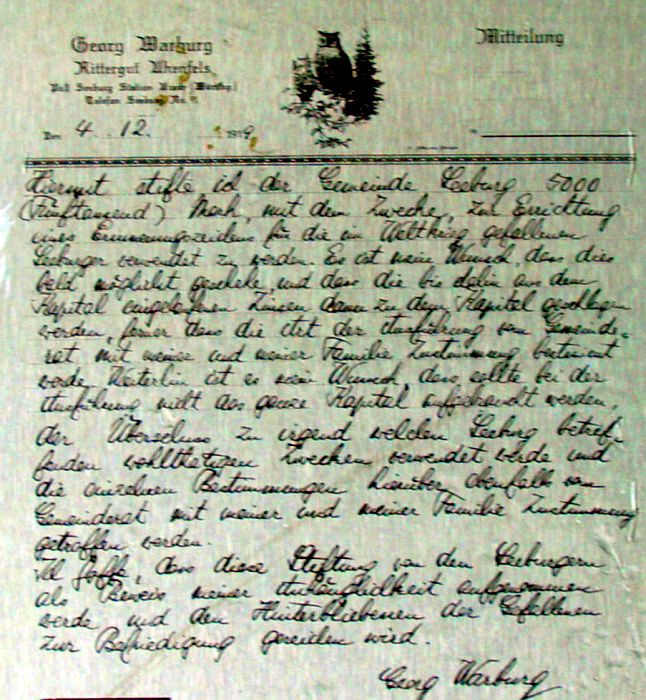 Georg Warburg
Rittergut Uhenfels
Post Seeburg Station Urach (Württbg.)
Telefon Seeburg No.
Mitteilung
Den 4. 12. 1919
Hiermit stifte ich der Gemeinde Seeburg 5000
(Fünftausend) Mark, mit dem Zwecke, zur Errichtung
eines Erinnerungszeichens für die im Weltkrieg gefallenen
Seeburger verwendet zu werden. Es ist mein Wunsch, dass dies
bald möglichst geschehe, und dass die bis dahin aus dem
Kapital eingelaufenen Zinsen dann zu dem Kapital geschlagen
werden, ferner dass die Art der Ausführung vom Gemeinde-
rat mit meiner und meiner Familie Zustimmung bestimmt
werde. Weiterhin ist es mein Wunsch, dass, sollte bei der
Ausführung nicht das ganze Kapital aufgebraucht werden,
der Überschuss zu irgend welchen Seeburg betref-
fenden wohlthätigen Zwecken verwendet werde und
die einzelnen Bestimmungen hierüber ebenfalls vom
Gemeinderat mit meiner und meiner Familie Zustimmung
getroffen werden.
Ich hoffe, dass diese Stiftung von den Seeburgern
als Beweis meiner Anhänglichkeit aufgenommen
werde und den Hinterbliebenen der Gefallenen
zur Befriedigung gereichen wird.
Georg Warburg